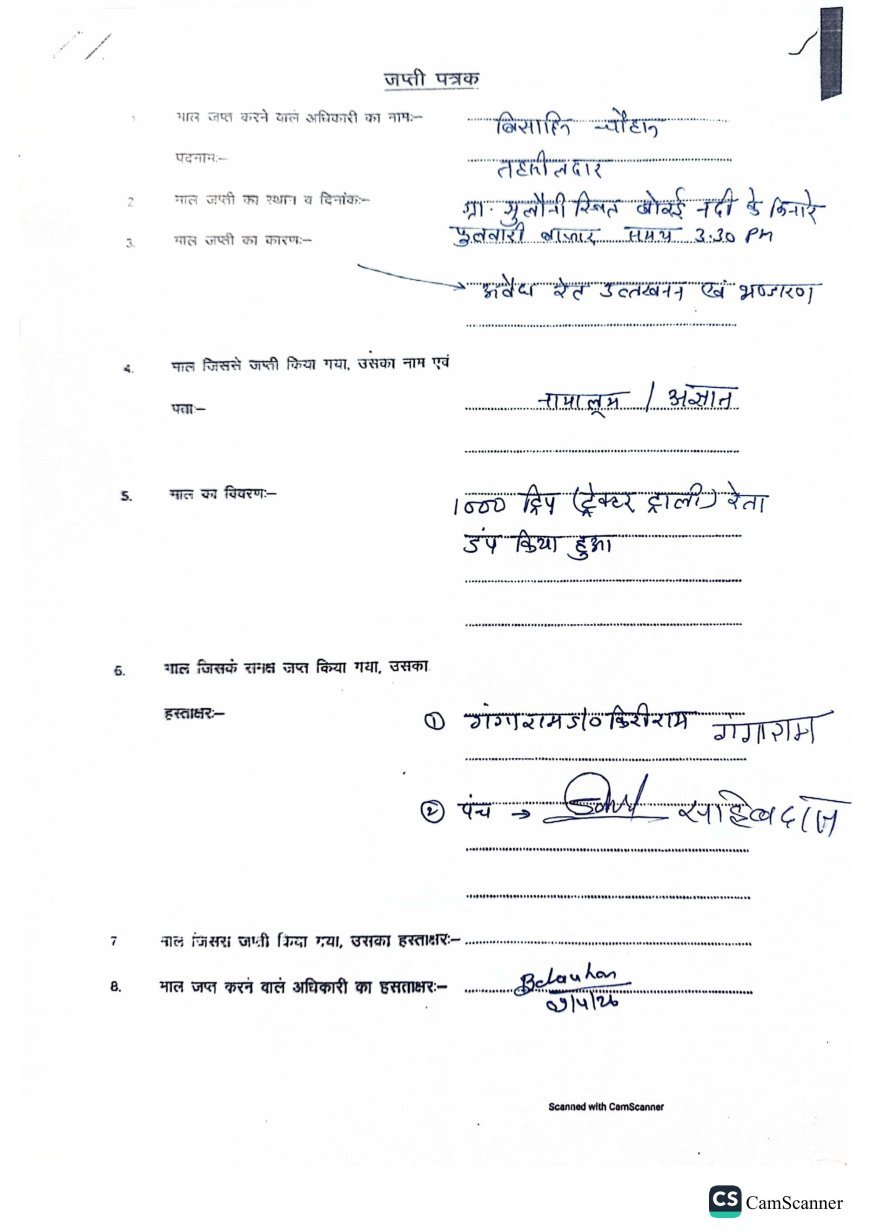 जप्ती पत्रक
1 माल जप्त करने वाले अधिकारी का नाम:– बिसाहिन चौहान
पदनाम:– तहसीलदार
2 माल जप्ती का स्थान व दिनांक:– ग्रा. मुलौनी स्थित बोरई नदी के किनारे
3. माल जप्ती का कारण:– फुलवारी बाजार समय 3.30 PM
अवैध रेत उत्तखनन एवं भण्डारण
4. माल जिससे जप्ती किया गया, उसका नाम एवं
पता:– नामालूम / अज्ञात
5. माल का विवरण:– 1000 ट्रिप (ट्रेक्टर ट्राली) रेता
डंप किया हुआ
6. माल जिसके समक्ष जप्त किया गया, उसका
हस्ताक्षर:– ① गंगाराम S/० किरीराम गंगाराम
② पंच → साहेबदास
7 माल जिससे जप्ती किया गया, उसका हस्ताक्षर:–
8. माल जप्त करने वाले अधिकारी का हसताक्षर:– Bchauhan
09/4/26
Scanned with CamScanner
CS CamScanner